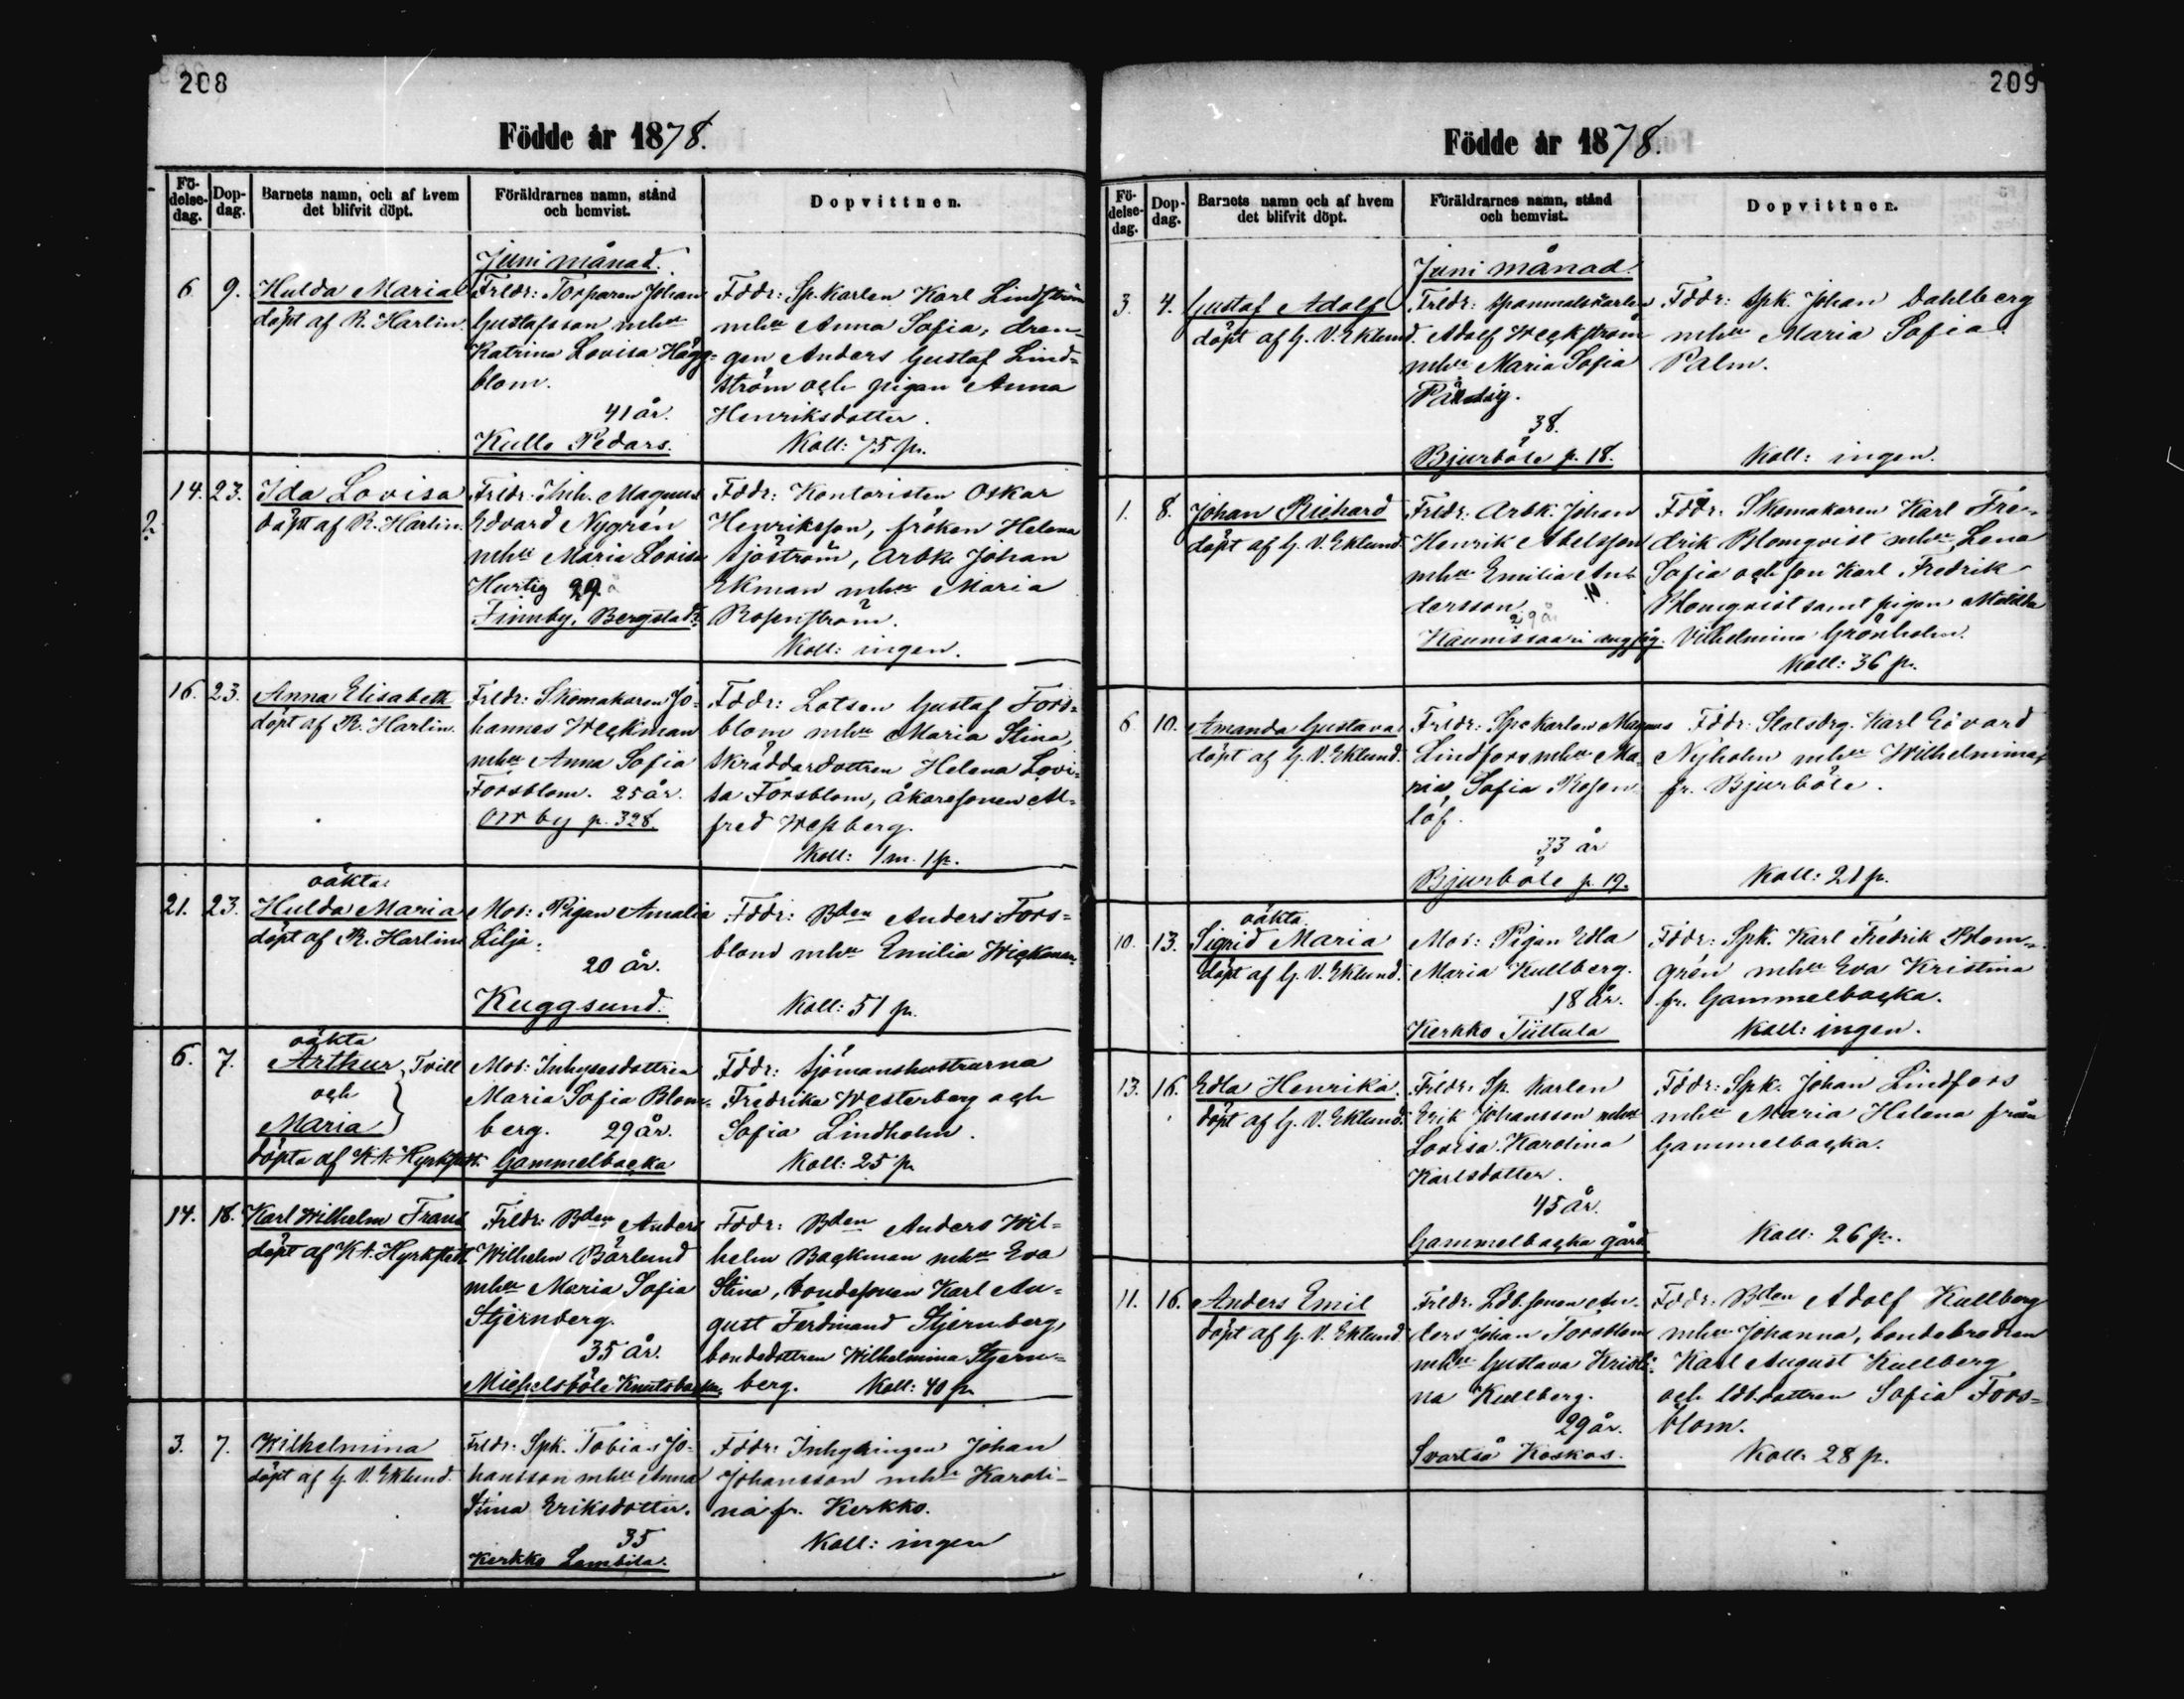 208
Födde år 1878.
Fö-
delse-
dag.
Dop-
dag.
Barnets namn, och af hvem
det blifvit döpt.
Föräldrarnes namn, stånd
och hemvist.
Dopvittnen.
Juni månad.
6 9. Hulda Maria
döpt af R. Harlin.
Frldr: Torparen Johan
Gustafsson mhu
Katrina Lovisa Hägg=
blom.
41 år.
Kullo Pedars.
Fddr: Sp.karlen Karl Lindström
mhu Anna Sofia, dren-
gen Anders Gustaf Lind=
ström och pigan Anna
Henriksdotter.
Koll: 75 p.
14. 23. Ida Lovisa
döpt af R. Harlin.
Frldr: Inh. Magnus
Edvard Nygrén
mhu Maria Lovisa
Hurtig 29.
Finnby, Bergstad
Fddr: Kontoristen Oskar
Henriksson, fröken Helena
Sjöström, Arbk. Johan
Ekman mhu Maria
Rosenström.
Koll: ingen.
16. 23. Anna Elisabeth
döpt af R. Harlin.
Frldr: Skomakaren Jo=
hannes Weckman
mhu Anna Sofia
Forsblom. 25 år.
Orrby p. 328.
Fddr: Lotsen Gustaf Fors=
blom mhu Maria Stina,
Skräddardottren Helena Lovi=
sa Forsblom, åkaresonen Al=
fred Wessberg.
Koll: 1 m. 1 p.
21. 23. oäkta
Hulda Maria
döpt af R. Harlin
Mod: Pigan Amalia
Lilja.
20 år.
Kuggsund.
Fddr: Bden Anders Fors=
blom mhu Emilia Wickman.
Koll: 51 p.
6. 7. oäkta
Arthur Tvill
och
Maria
döpta af K. A. Hyrkstedt.
Mod: Inhysesdottren
Maria Sofia Blom-
berg. 29 år.
Gammelbacka
Fddr: Sjömanshustrurna
Fredrika Westerberg och
Sofia Lindholm.
Koll: 25 p.
14. 18. Karl Wilhelm Frans
döpt af K. A. Hyrkstedt.
Frldr: Bden Anders
Wilhelm Bärlund
mhu Maria Sofia
Stjernberg.
35 år.
Michelsböle Knutsbacka.
Fddr: Bden Anders Wil=
helm Backman mhu Eva
Stina, bondesonen Karl Au=
gust Ferdinand Stjernberg,
bondedottren Wilhelmina Stjern=
berg. Koll: 40 p.
3. 7. Wilhelmina
döpt af G. V. Eklund.
Frldr: Spk. Tobias Jo-
hansson mhu Anna
Stina Eriksdotter.
35
Kerkko Lambila.
Fddr: Inhysingen Johan
Johansson mhu Karoli-
na fr. Kerkko.
Koll: ingen
209
Födde år 1878.
Fö-
delse-
dag.
Dop-
dag.
Barnets namn och af hvem
det blifvit döpt.
Föräldrarnes namn, stånd
och hemvist.
Dopvittnen.
Juni månad.
3. 4. Gustaf Adolf
döpt af G. V. Eklund.
Frldr: Spanmålskarlen
Adolf Weckström
mhu Maria Sofia
38.
Bjurböle p. 18.
Fddr: Spk. Johan Dahlberg
mhu Maria Sofia
Palm.
Koll: ingen.
1. 8. Johan Richard
döpt af G. V. Eklund.
Frldr: Arbk. Johan
Henrik Abelsson
mhu Emilia An-
dersson
29 år
Kaunissaari ångsåg.
Fddr: Skomakaren Karl Fre-
drik Blomqvist mhu Lena
Sofia och son Karl Fredrik
Blomqvist samt pigan Matilda
Vilhelmina Grönholm.
Koll: 36 p.
6 10. Amanda Gustava
döpt af G. V. Eklund.
Frldr: Spekarlen Magnus
Lindfors mhu Ma-
ria Sofia Rosen-
löf.
33 år
Bjurböle p. 19.
Fddr: Statsdrg. Karl Edvard
Nyholm mhu Wilhelmina
fr. Bjurböle.
Koll: 21 p.
10. 13. oäkta
Sigrid Maria
döpt af G. V. Eklund.
Mod: Pigan Edla
Maria Kullberg.
18 år.
Kerkko Tiittula
Fddr: Spk. Karl Fredrik Blom-
grén mhu Eva Kristina
fr. Gammelbacka.
Koll: ingen.
13. 16. Edla Henrika.
döpt af G. V. Eklund.
Frldr: Sp. karlen
Erik Johansson mhu
Lovisa Karolina
Karlsdotter.
45 år.
Gammelbacka gård
Fddr: Spk. Johan Lindfors
mhu Maria Helena från
Gammelbacka.
Koll: 26 p.
11. 16. Anders Emil
döpt af G. V. Eklund.
Frldr: Ldb.sonen An-
ders Johan Forsblom
mhu Gustava Kristi-
na Kullberg.
29 år.
Svartså Koskas.
Fddr: Bden Adolf Kullberg
mhu Johanna, bondebrodren
Karl August Kullberg
och ldb.dottren Sofia Fors=
blom.
Koll: 28 p.